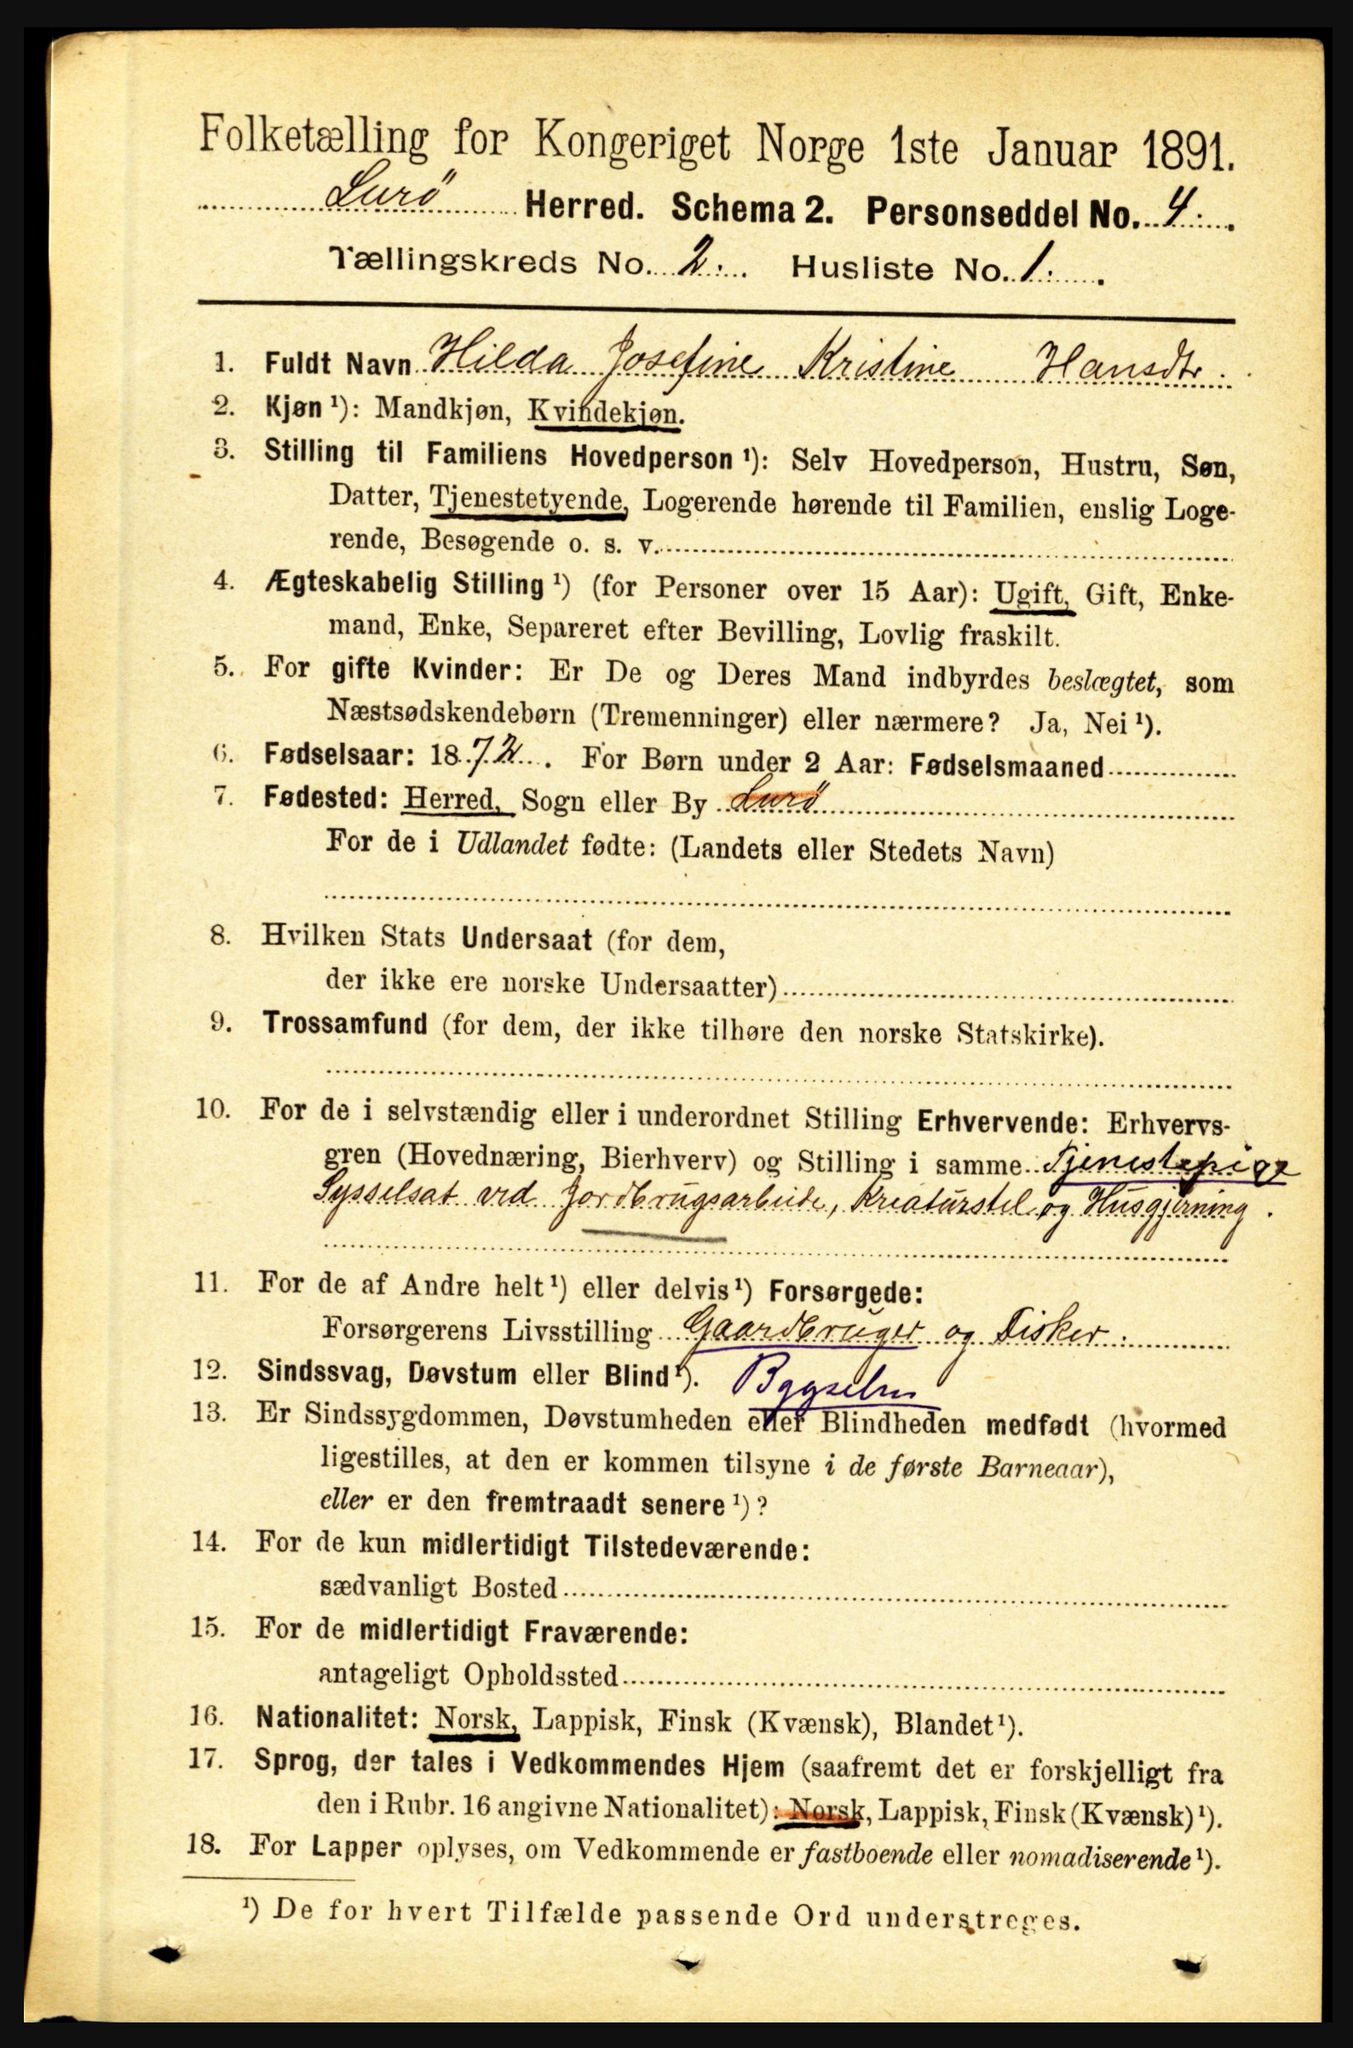 Folketælling for Kongeriget Norge 1ste Januar 1891.
Lurö Herred. Schema 2. Personseddel No. 4.
Tællingskreds No. 2. Husliste No. 1.
1. Fuldt Navn Hilda Josefine Kristine Hansdtr.
2. Kjøn ¹): Mandkjøn, Kvindekjøn.
3. Stilling til Familiens Hovedperson ¹): Selv Hovedperson, Hustru, Søn,
Datter, Tjenestetyende, Logerende hørende til Familien, enslig Loge-
rende, Besøgende o. s. v.
4. Ægteskabelig Stilling ¹) (for Personer over 15 Aar): Ugift, Gift, Enke-
mand, Enke, Separeret efter Bevilling, Lovlig fraskilt.
5. For gifte Kvinder: Er De og Deres Mand indbyrdes beslægtet, som
Næstsødskendebørn (Tremenninger) eller nærmere? Ja, Nei ¹).
6. Fødselsaar: 1872. For Børn under 2 Aar: Fødselsmaaned
7. Fødested: Herred, Sogn eller By Lurö
For de i Udlandet fødte: (Landets eller Stedets Navn)
8. Hvilken Stats Undersaat (for dem,
der ikke ere norske Undersaatter)
9. Trossamfund (for dem, der ikke tilhøre den norske Statskirke).
10. For de i selvstændig eller i underordnet Stilling Erhvervende: Erhvervs-
gren (Hovednæring, Bierhverv) og Stilling i samme Tjenestepige
Sysselsat ved Jordbrugsarbeide, Kreaturstel og Husgjerning.
11. For de af Andre helt ¹) eller delvis ¹) Forsørgede:
Forsørgerens Livsstilling Gaardbruger og Fisker.
12. Sindssvag, Døvstum eller Blind ¹). Bygselm
13. Er Sindssygdommen, Døvstumheden eller Blindheden medfødt (hvormed
ligestilles, at den er kommen tilsyne i de første Barneaar),
eller er den fremtraadt senere ¹)?
14. For de kun midlertidigt Tilstedeværende:
sædvanligt Bosted
15. For de midlertidigt Fraværende:
antageligt Opholdssted
16. Nationalitet: Norsk, Lappisk, Finsk (Kvænsk), Blandet ¹).
17. Sprog, der tales i Vedkommendes Hjem (saafremt det er forskjelligt fra
den i Rubr. 16 angivne Nationalitet): Norsk, Lappisk, Finsk (Kvænsk) ¹).
18. For Lapper oplyses, om Vedkommende er fastboende eller nomadiserende ¹).
¹) De for hvert Tilfælde passende Ord understreges.